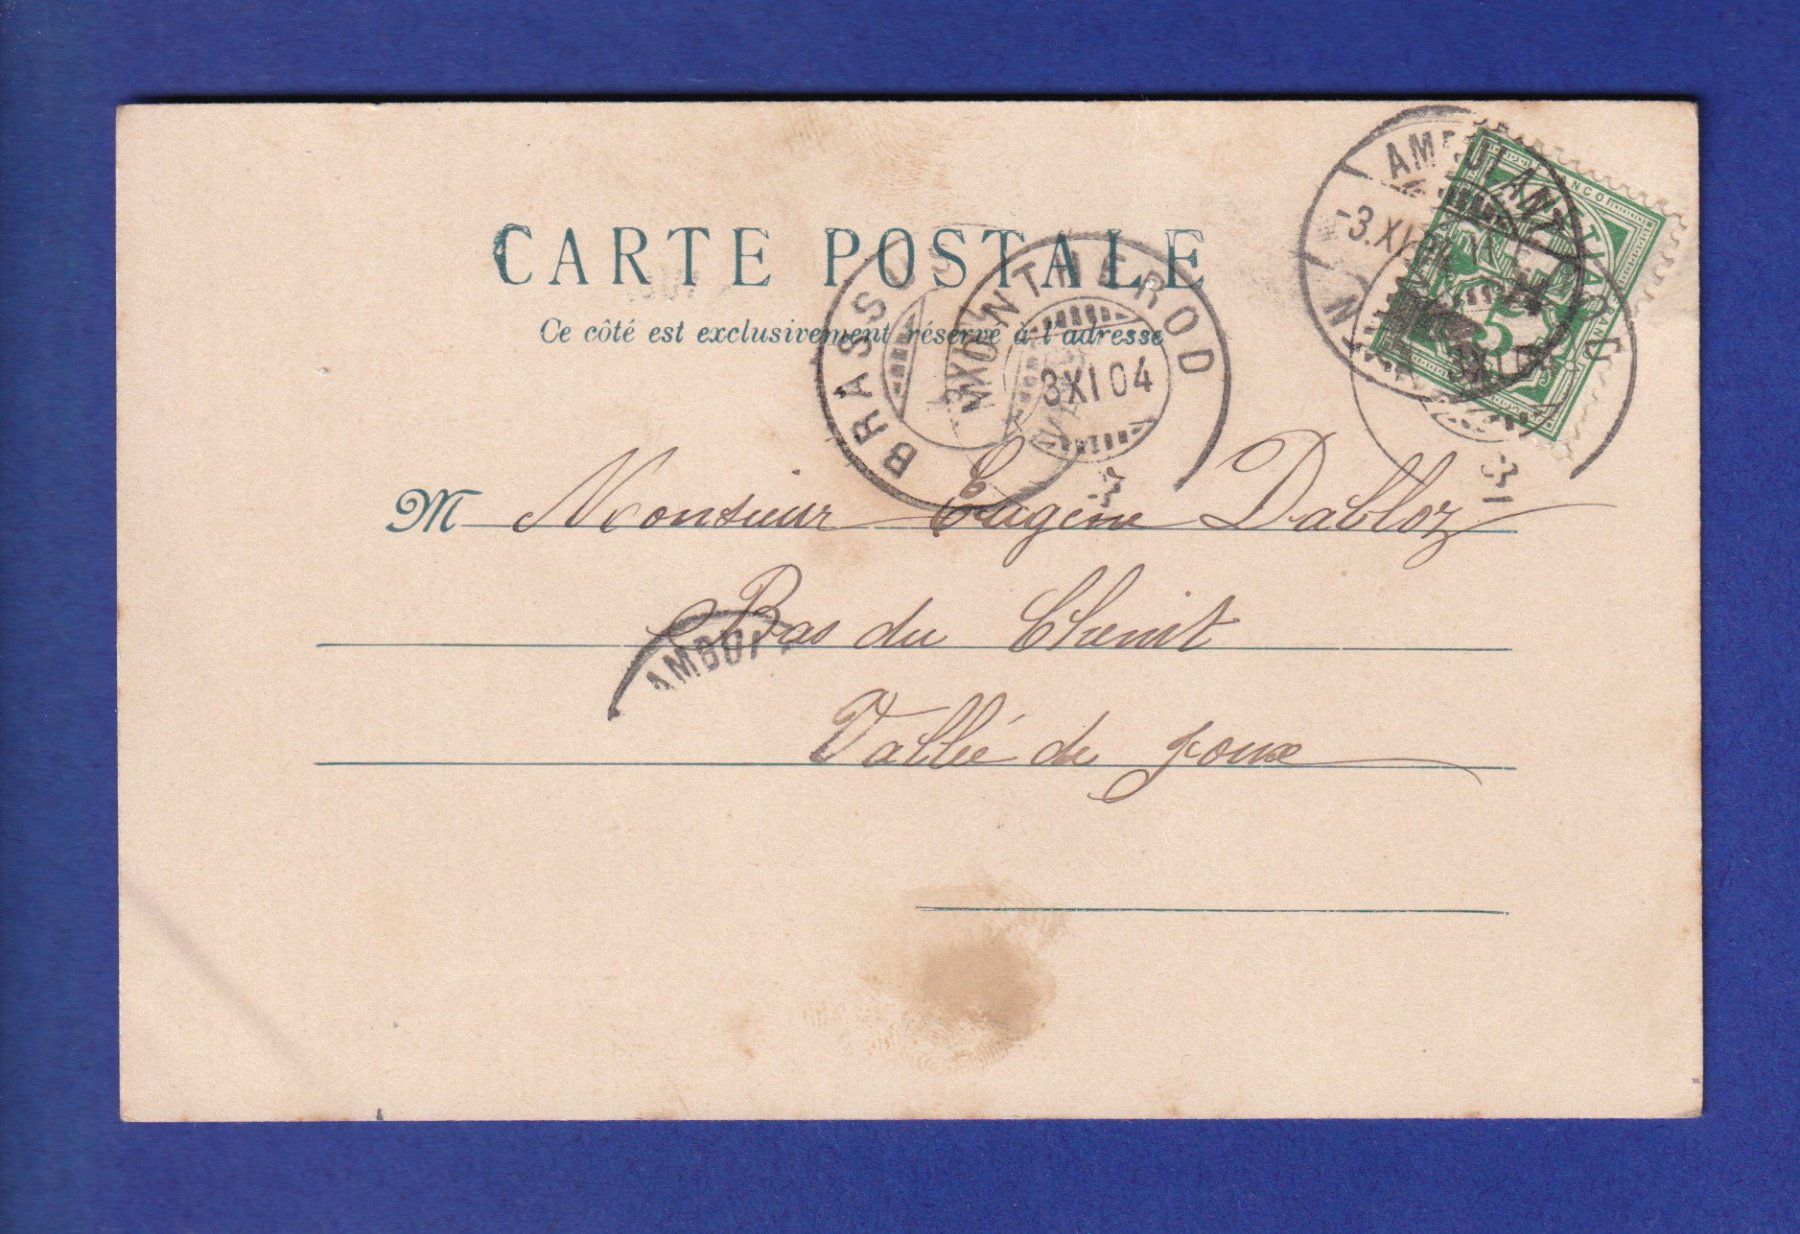 CARTE POSTALE
Ce côté est exclusivement réservé à l'adresse
BRASSUS
MONTHEROD
3 XI 04
AMBULANT
-3.XI
FRANCO
5
M Monsieur Eugène Dabloz
Bas du Chenit
AMBUL
Vallée de Joux